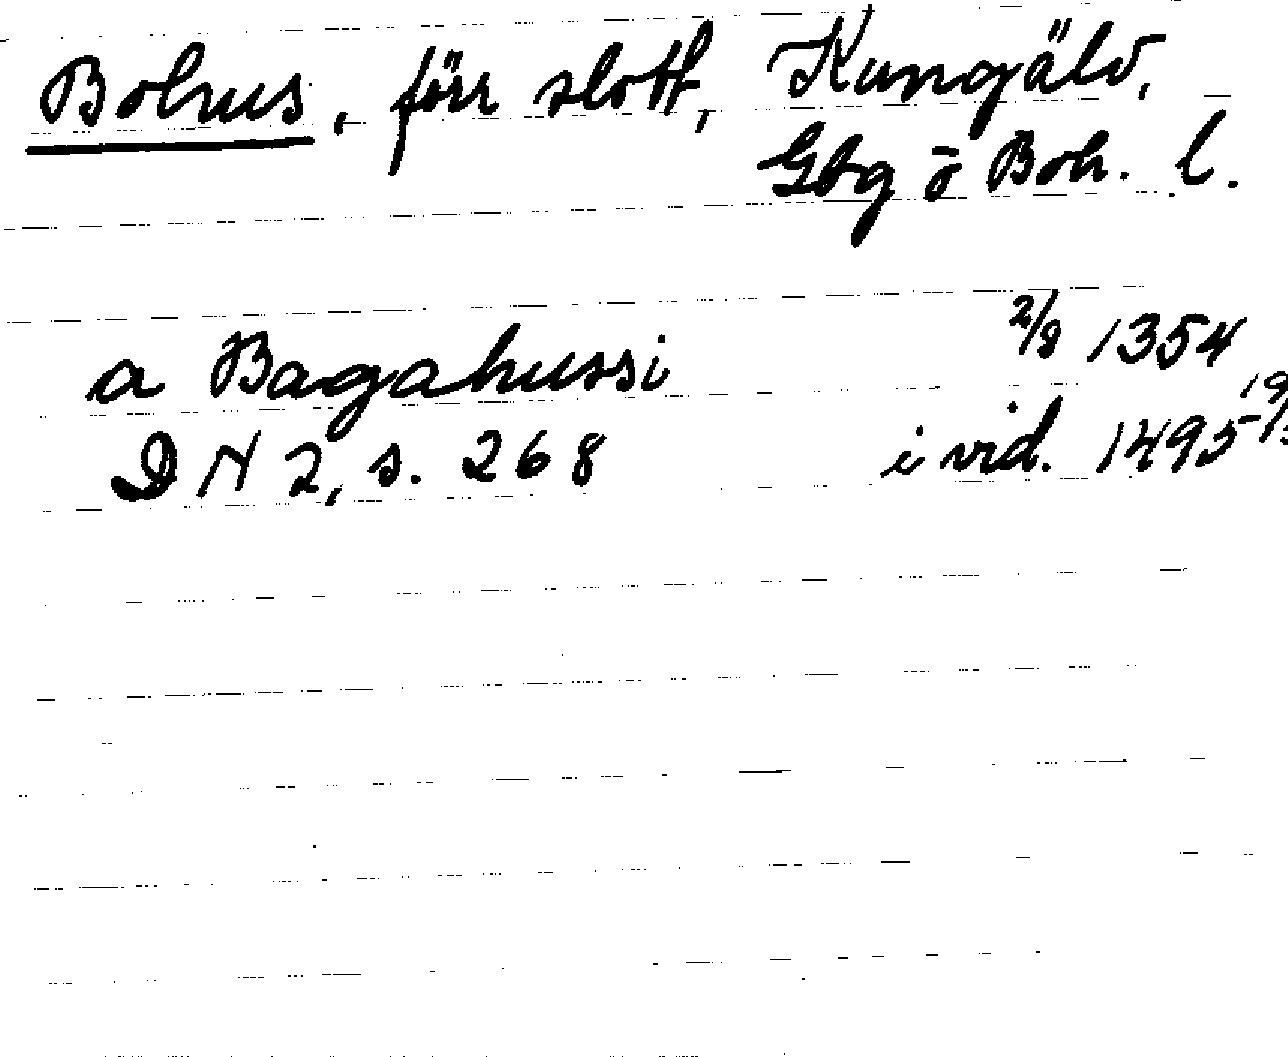 Bohus, förr slott, Kungälv,
Gbg o Boh. l.
a Bagahussi 2/8 1354
DN 2, s. 268 i vid. 1495